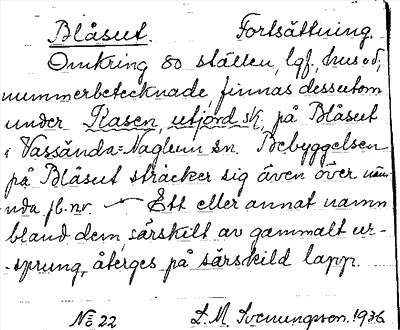 Blåsut. Fortsättning.
Omkring 80 ställen, lgf, hus o d,
nummerbetecknade, finnas dessutom
under Kasen, utjord sk, på Blåsut
i Vassända-Naglum sn. Bebyggelsen
på Blåsut sträcker sig även över näm-
nda jb.nr. — Ett eller annat namn
bland dem, särskilt av gammalt ur-
-sprung, återges på särskild lapp.
No 22 S. M. Svenungson. 1936